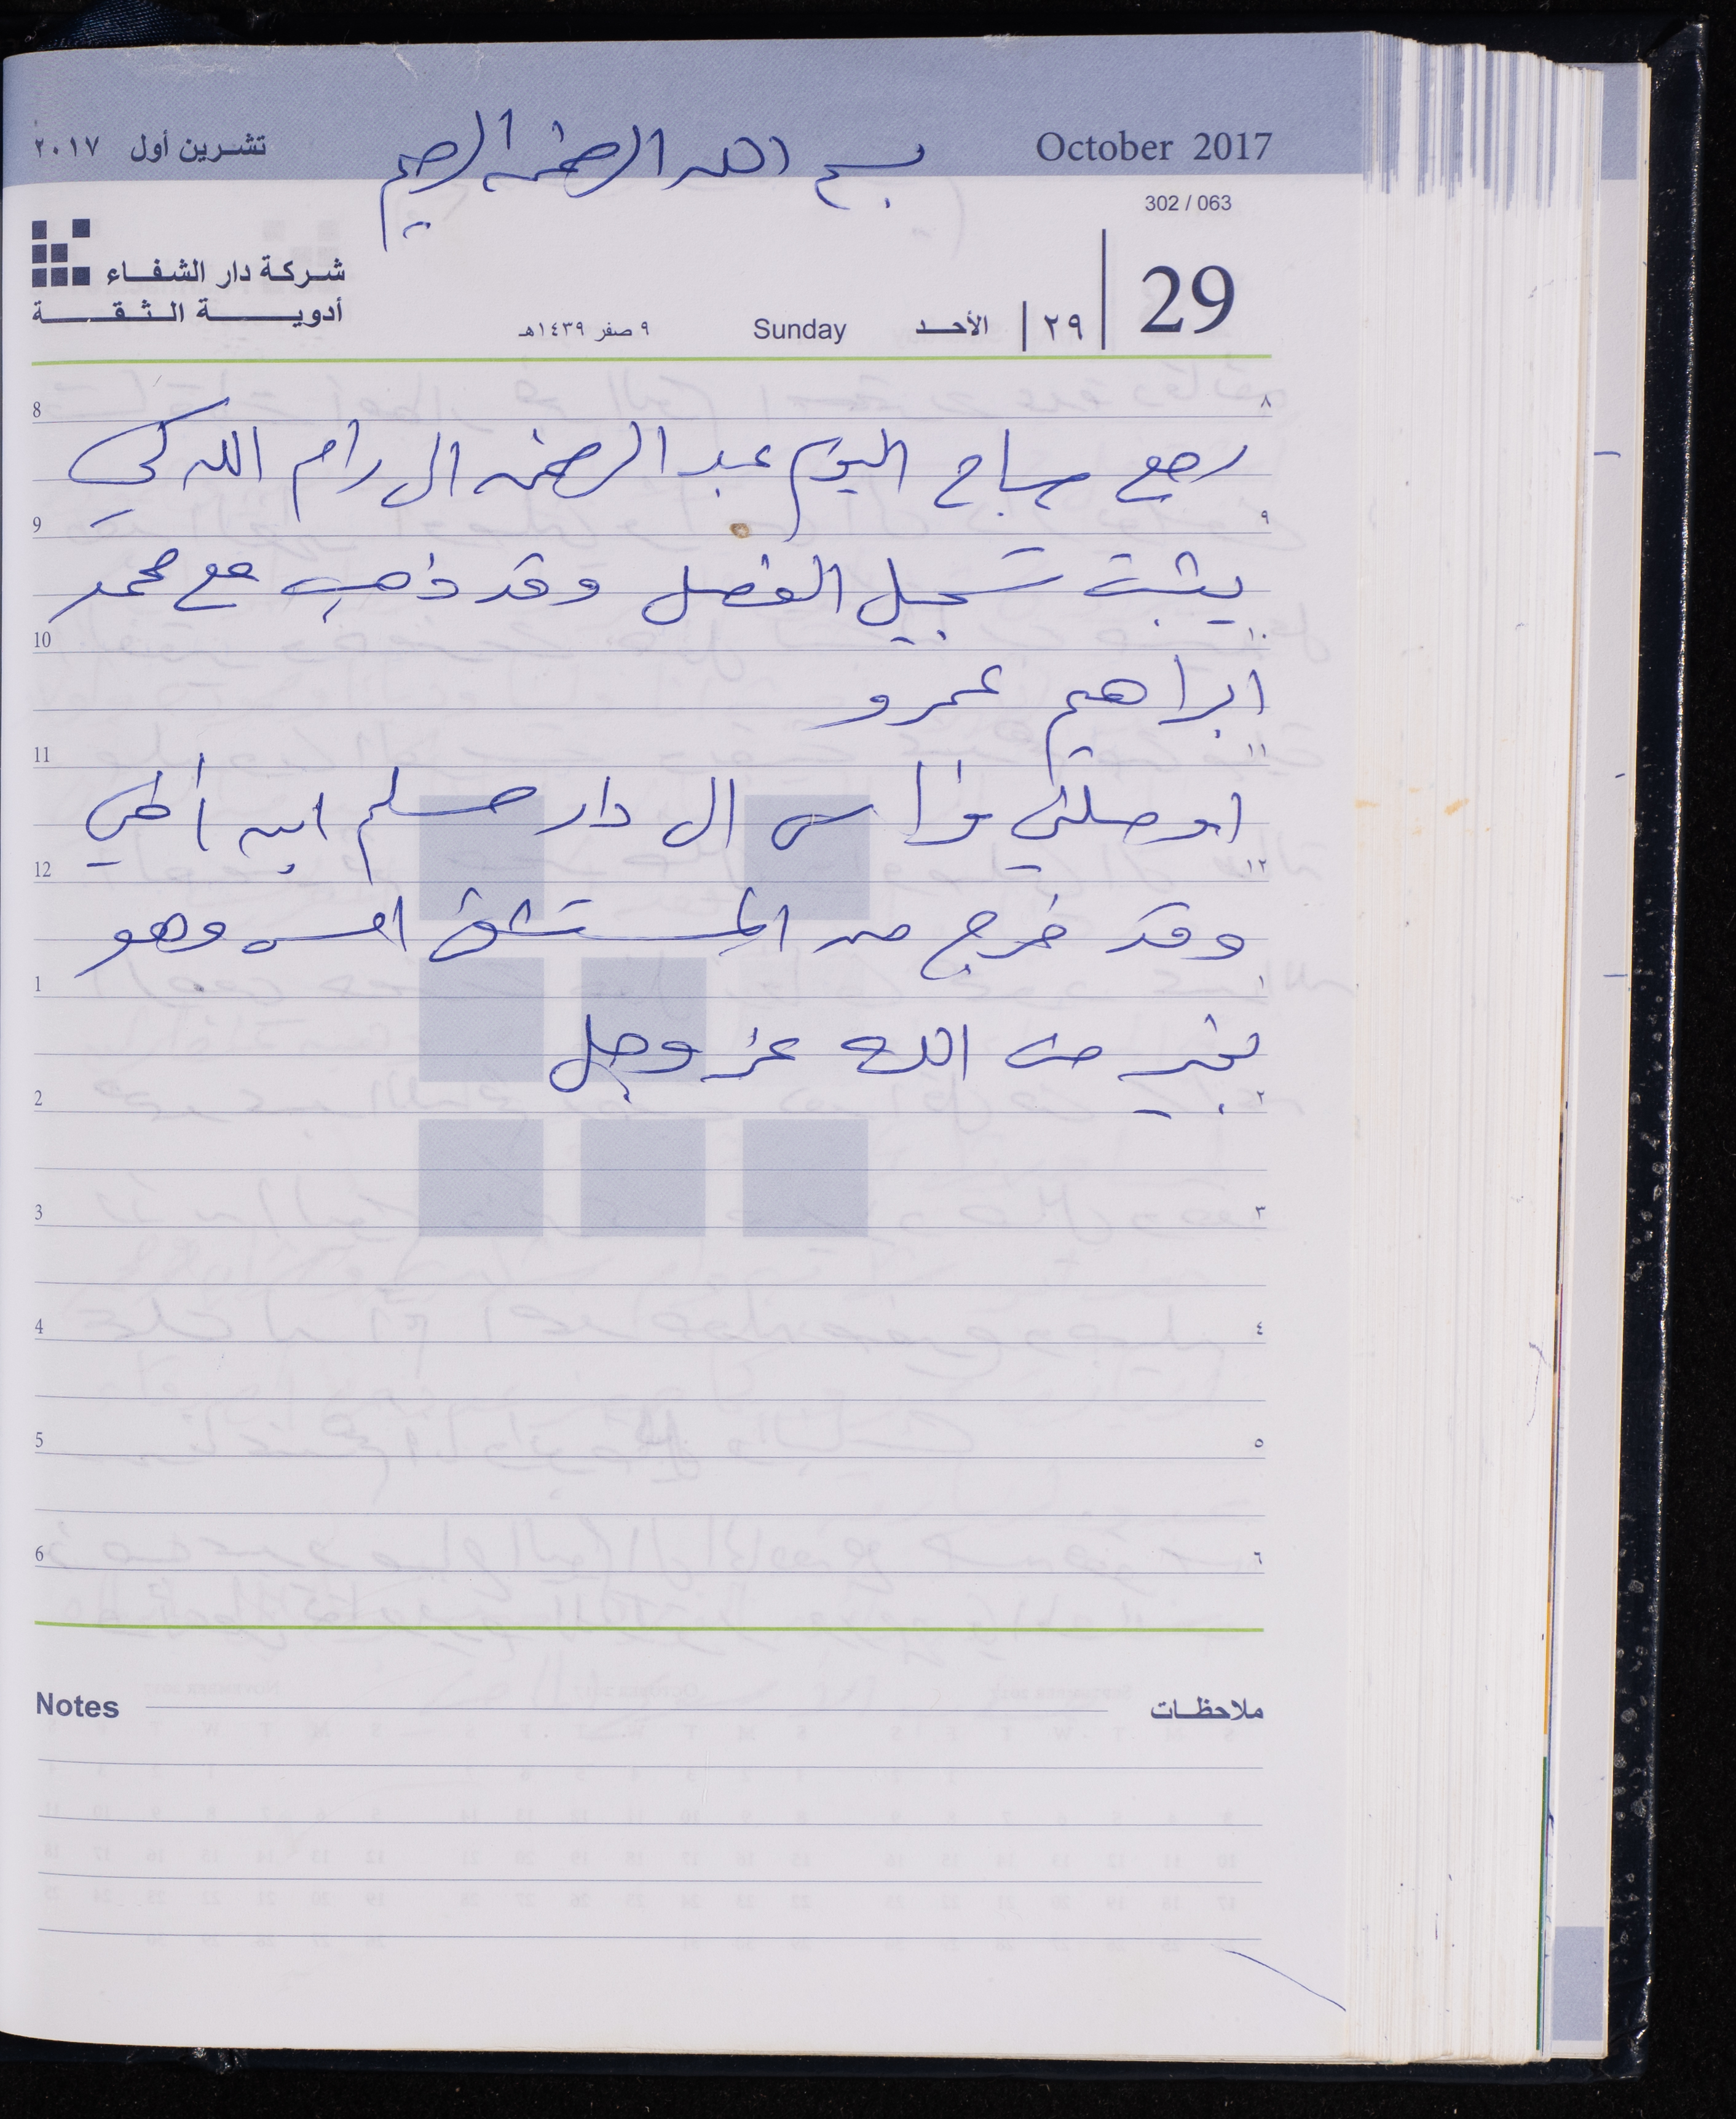 تشرين أول ٢٠١٧
بسم الله الرحمن الرحيم
October 2017
302 / 063
شركة دار الشفاء
أدوية الثقة
٩ صفر ١٤٣٩هـ Sunday الأحد ٢٩ 29
8 ٨
رجع صباح اليوم عبد الرحمن الى رام الله كي
9 ٩
يثبت تسجيل الفصل وقد ذهب مع محمد
10 ١٠
ابراهيم عمرو
11 ١١
اوصلني فراس الى دار مسلم ابن أخي
12 ١٢
وقد خرج من المستشفى امس وهو
1 ١
بخير من الله عز وجل
2 ٢
3 ٣
4 ٤
5 ٥
6 ٦
Notes ملاحظات